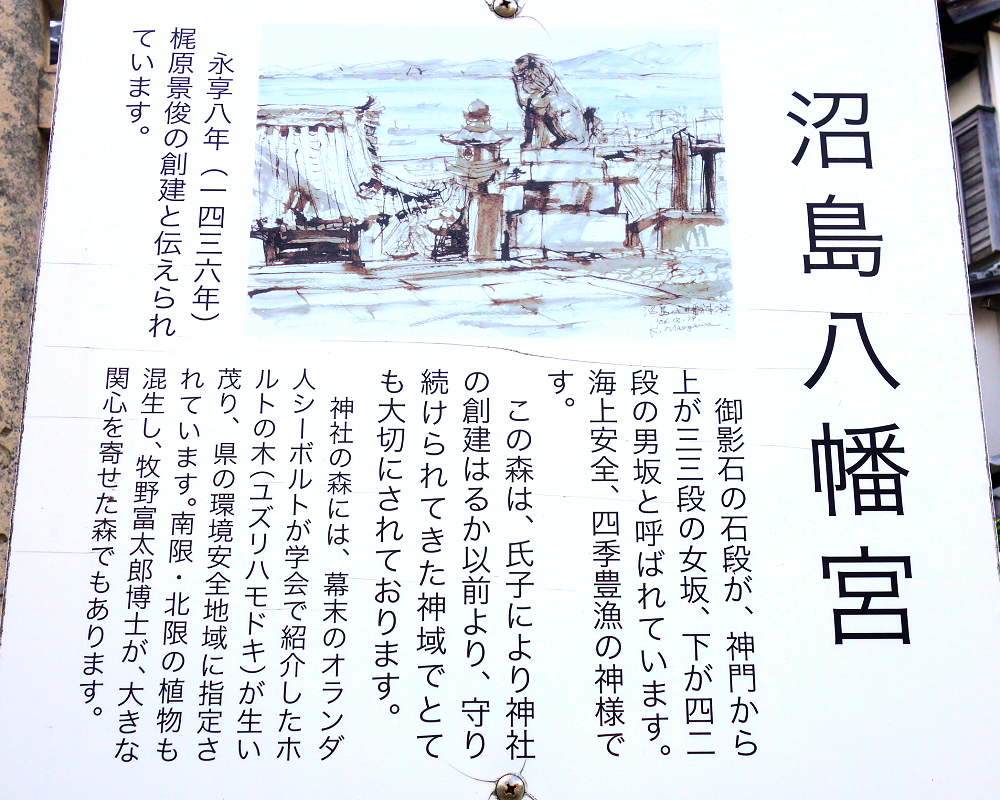 沼島八幡宮
永享八年（一四三六年）
梶原景俊の創建と伝えられ
ています。
御影石の石段が、神門から
上が三三段の女坂、下が四二
段の男坂と呼ばれています。
海上安全、四季豊漁の神様で
す。
この森は、氏子により神社
の創建はるか以前より、守り
続けられてきた神域でとて
も大切にされております。
神社の森には、幕末のオランダ
人シーボルトが学会で紹介したホ
ルトの木（ユズリハモドキ）が生い
茂り、県の環境安全地域に指定さ
れています。南限・北限の植物も
混生し、牧野富太郎博士が、大きな
関心を寄せた森でもあります。